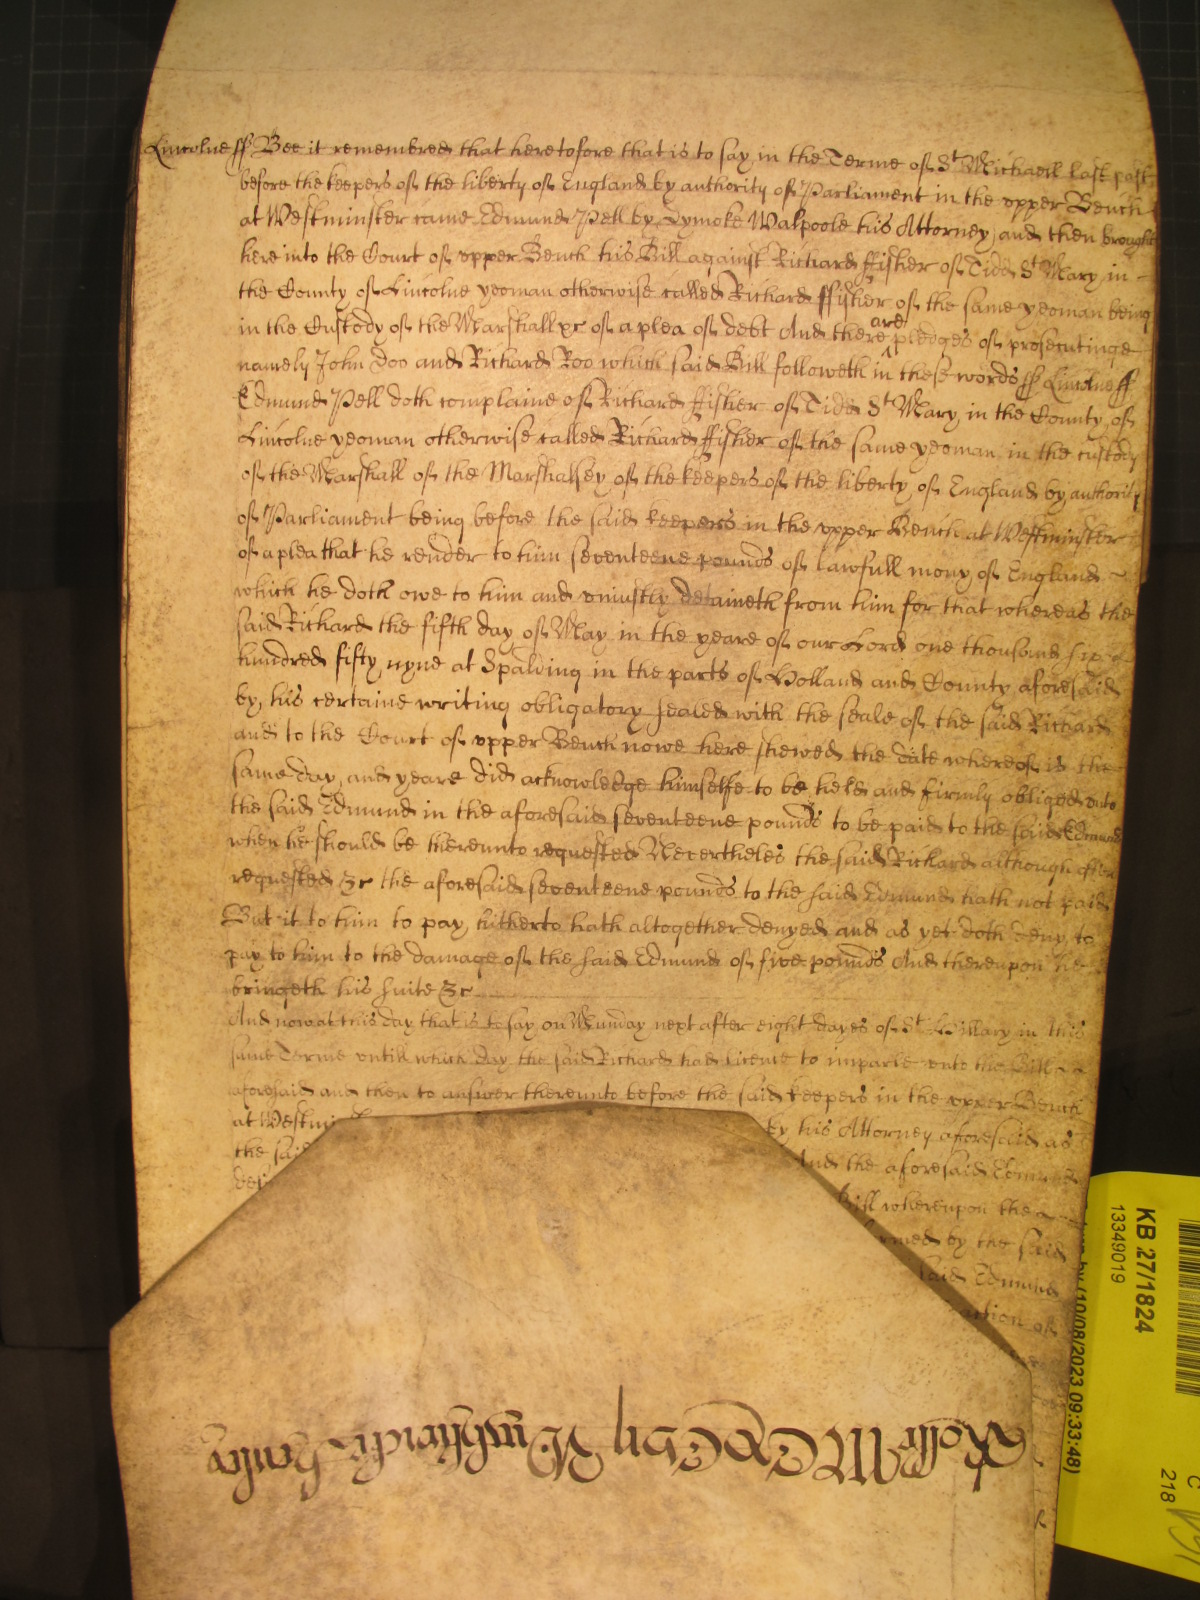 Lincolne ss Bee it remembred that heretofore that is to say in the Terme of St Michaell last past
before the keepers of the liberty of England by authority of Parliament in the upper Bench
at Westminster came Edmund Pell by Dymoke Walpoole his Attorney and then brought
here into the Court of upper Bench his Bill against Richard ffisher of Tidd St Mary in
the County of Lincolne yeoman otherwise called Richard ffisher of the same yeoman being
in the Custody of the Marshall &c of a plea of debt And there are pledges of prosecutinge
namely John Doo and Richard Roo which said Bill followeth in these words ss Lincolne ss
Edmund Pell doth complaine of Richard ffisher of Tidd St Mary in the County of
Lincolne yeoman otherwise called Richard ffisher of the same yeoman in the custody
of the Marshall of the Marshalsey of the keepers of the liberty of England by authority
of Parliament being before the said keepers in the upper Bench at Westminster
of a plea that he render to him seventeene pounds of lawfull mony of England
which he doth owe to him and uniustly detaineth from him for that whereas the
said Richard the fifth day of May in the yeare of our Lord one thousand six
hundred fifty nyne at Spalding in the parts of Holland and County aforesaid
by his certaine writing obligatory sealed with the seale of the said Richard
and to the Court of upper Bench nowe here shewed the date whereof is the
same day and yeare did acknowledge himselfe to be held and firmly obliged unto
the said Edmund in the aforesaid seventeene pounds to be paid to the said Edmund
when he should be thereunto requested Neverthelesse the said Richard although often
requested &c the aforesaid seventeene pounds to the said Edmund hath not paid
But it to him to pay hitherto hath altogether denyed and as yet doth deny to
pay to him to the damage of the said Edmund of five pounds And thereupon he
bringeth his suite &c
And now at this day that is to say on Munday next after eight dayes of St Hillary in this
same Terme untill which day the said Richard had licence to imparle unto the Bill
aforesaid and then to answer thereunto before the said keepers in the upper Bench
at Westmi by his Attorney aforesaid as
the said And the aforesaid Edmund
Bill whereupon the
by the said
said Edmund
action of
KB 27/1824
13349019
(10/08/2023 09:33:48)
218